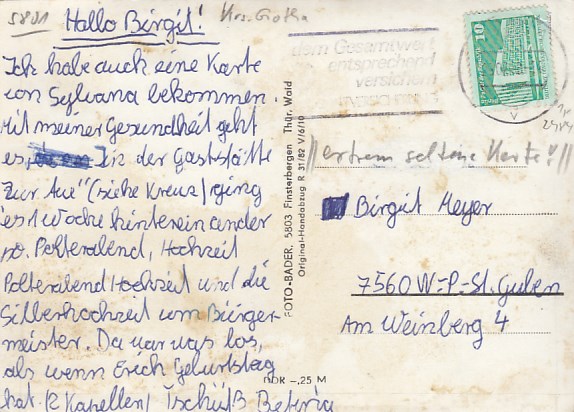 5801
Krs. Gotha
Hallo Birgit!
Ich habe auch eine Karte
von Sylvana bekommen.
Mit meiner Gesundheit geht
es, In der Gaststätte
Zur Aue" (siehe Kreuz) ging
es 1 Woche hintereinander
so. Polterabend, Hochzeit
Polterabend Hochzeit und die
Silberhochzeit vom Bürger-
meister. Da war was los,
als wenn Erich Geburtstag
hat. (2 Kapellen) Tschüß
dem Gesamtwert
entsprechend
versichern
10
FOTO-BADER, 5803 Finsterbergen Thür. Wald
Original-Handabzug R 31/82 V/6/10
DDR -,25 M
//extrem seltene Karte!//
Birgit Meyer
7560 W.-P.-St. Guben
Am Weinberg 4